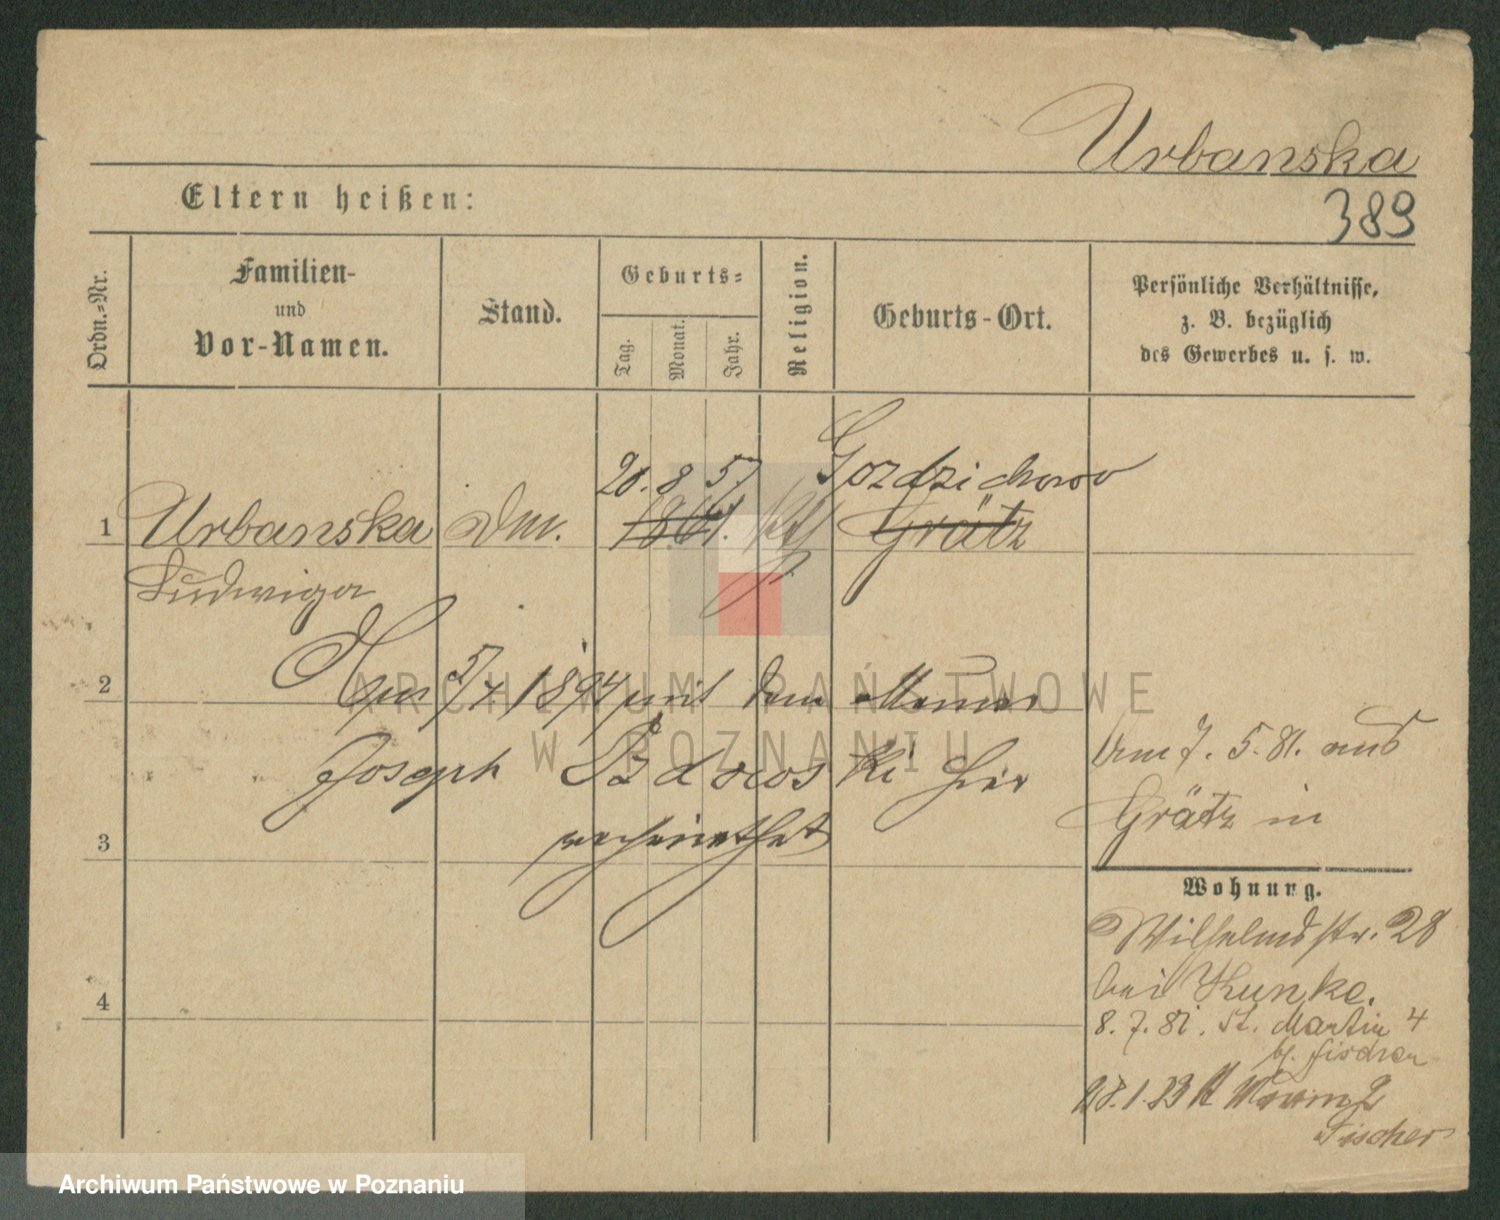 Urbanska
Eltern heißen:
389
Ordn.-Nr.
Familien-
und
Vor-Namen.
Stand.
Geburts-
Tag.
Monat.
Jahr.
Religion.
Geburts-Ort.
Persönliche Verhältnisse,
z. B. bezüglich
des Gewerbes u. s. w.
20. 8 57
Gozdzichowo
1
Urbanska
1861.
kth
Grätz
Ludwiga
2
5/X 1894 mit dem Maurer
Joseph hier
verheirathet
3
Am 7. 5. 81. aus
Grätz in
Wohnung.
Wilhelmstr. 28
bei Kunke.
4
8. 7. 81. St. Martin 4
b. Fischer
28. 1. 83 St Martin 2
Fischer
ARCHIWUM PAŃSTWOWE
W POZNANIU
Archiwum Państwowe w Poznaniu